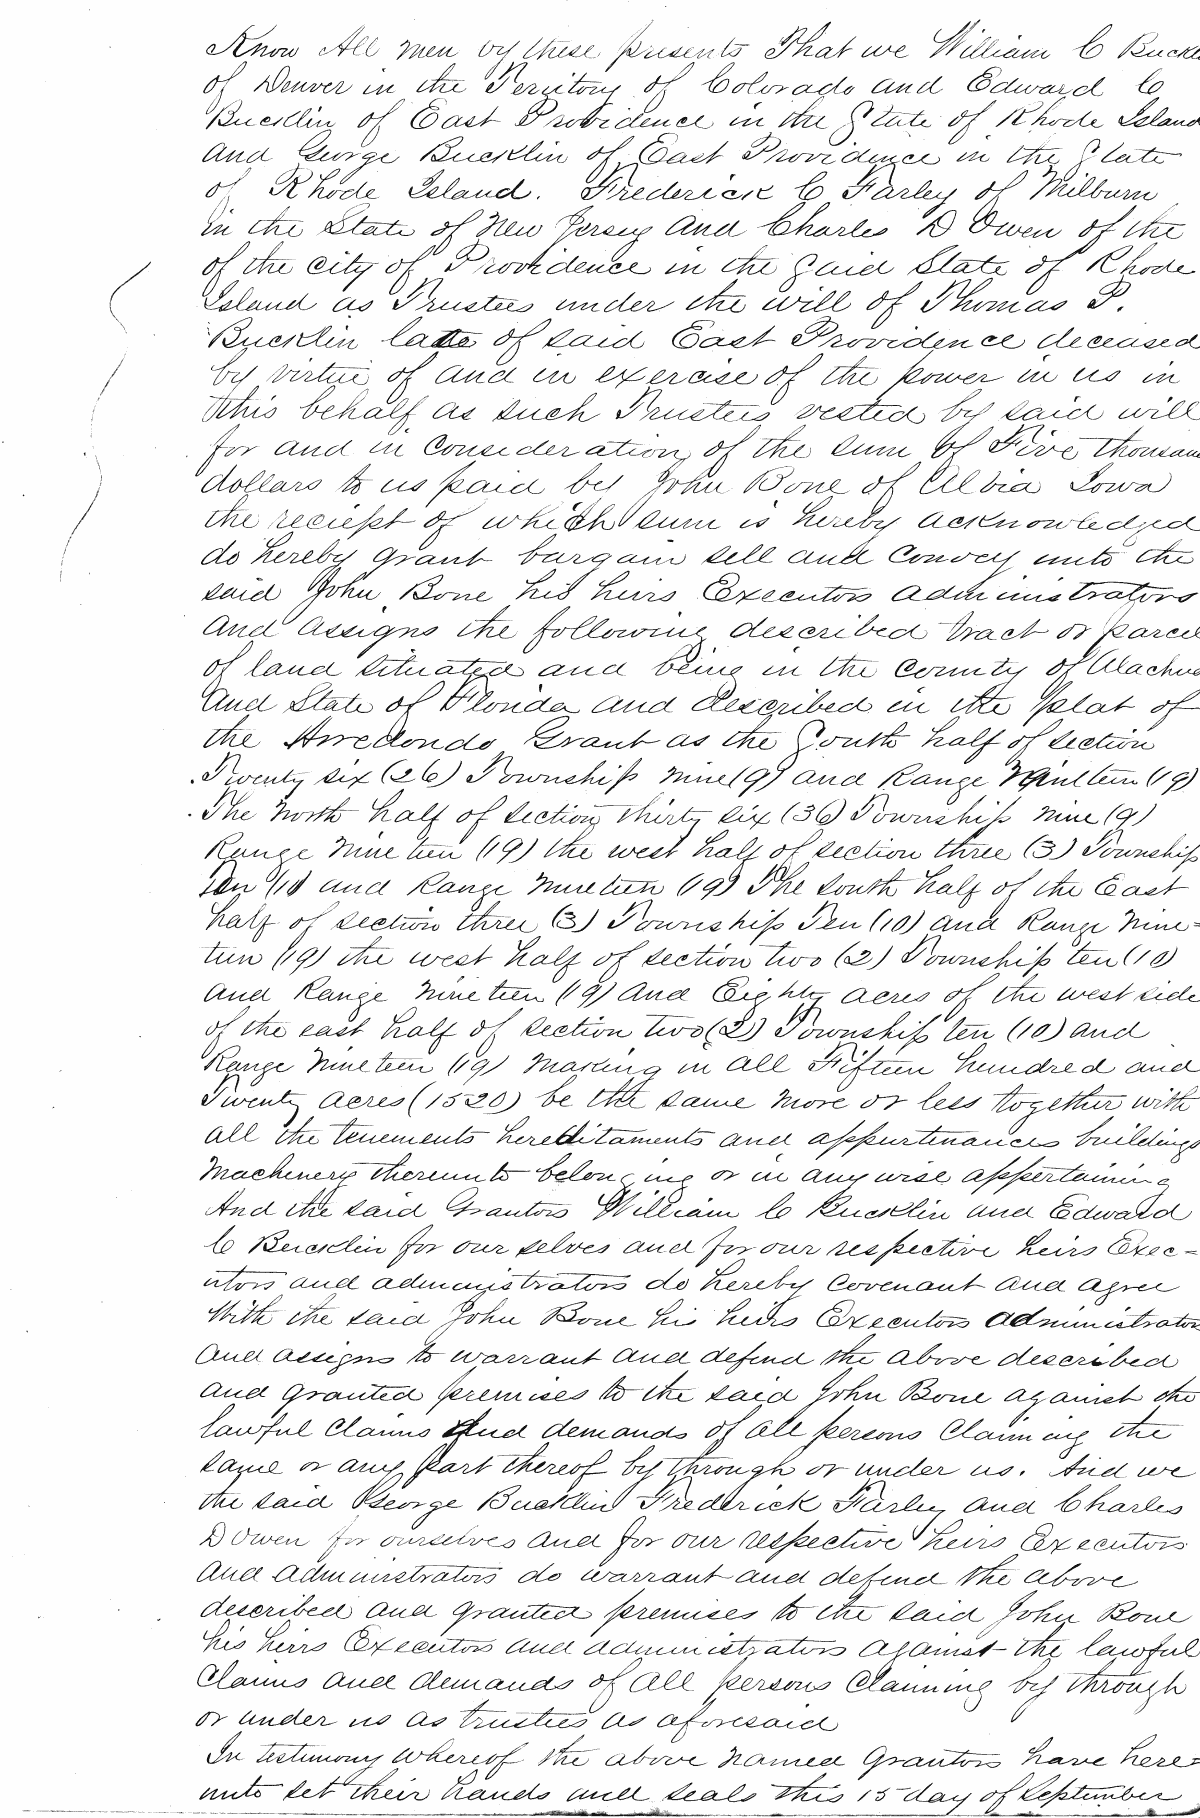 Know All men by these presents That we William C Buckl
of Denver in the Territory of Colorado and Edward C
Bucklin of East Providence in the State of Rhode Island
and George Bucklin of East Providence in the State
of Rhode Island. Frederick C Farley of Milburn
in the State of New Jersey and Charles D Owen of the
of the city of Providence in the said State of Rhode
Island as Trustees under the will of Thomas P.
Bucklin late of said East Providence deceased
by virtue of and in exercise of the power in us in
this behalf as such Trustees vested by said will
for and in consideration of the sum of Five thousan
dollars to us paid by John Bone of Albia Iowa
the reciept of which sum is hereby acknowledged
do hereby grant bargain sell and convey unto the
said John Bone his heirs Executors administrators
and assigns the following described tract or parcel
of land situated and being in the county of Alachua
and State of Florida and described in the plat of
the Arredondo Grant as the South half of section
Twenty six (26) Township nine (9) and Range Ninteen (19)
The North half of section thirty six (36) Township nine (9)
Range Nineteen (19) the west half of section three (3) Township
Ten (10 and Range Nineteen (19) The south half of the East
half of section three (3) Township Ten (10) and Range Nine=
teen (19) the west half of section two (2) Township ten (10
and Range Nineteen (19) and Eighty acres of the west side
of the east half of section two (2) Township ten (10) and
Range Nineteen (19) making in all Fifteen hundred and
Twenty acres (1520) be the same more or less together with
all the tenements hereditaments and appurtenances buildings
Machinery thereunto belonging or in any wise appertaining
And the said Grantors William C Bucklin and Edward
C Bucklin for our selves and for our respective heirs Exec-
utors and administrators do hereby covenant and agree
With the said John Bone his heirs Executors administrators
and assigns to warrant and defend the above described
and granted premises to the said John Bone against the
lawful claims and demands of all persons claiming the
same or any part thereof by through or under us. And we
the said George Bucklin Frederick Farley and Charles
D Owen for ourselves and for our respective heirs Executors
and administrators do warrant and defend the above
described and granted premises to the said John Bone
his heirs Executors and administrators against the lawful
claims and demands of all persons claiming by through
or under us as trustees as aforesaid
In testimony whereof the above named Grantors have here=
unto set their hands and seals this 15 day of September